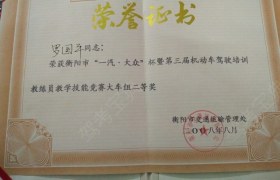 荣誉证书
罗国军同志：
荣获衡阳市“一汽·大众”杯暨第三届机动车驾驶培训
教练员教学技能竞赛大车组二等奖
衡阳市交通运输管理处
二〇〇八年八月